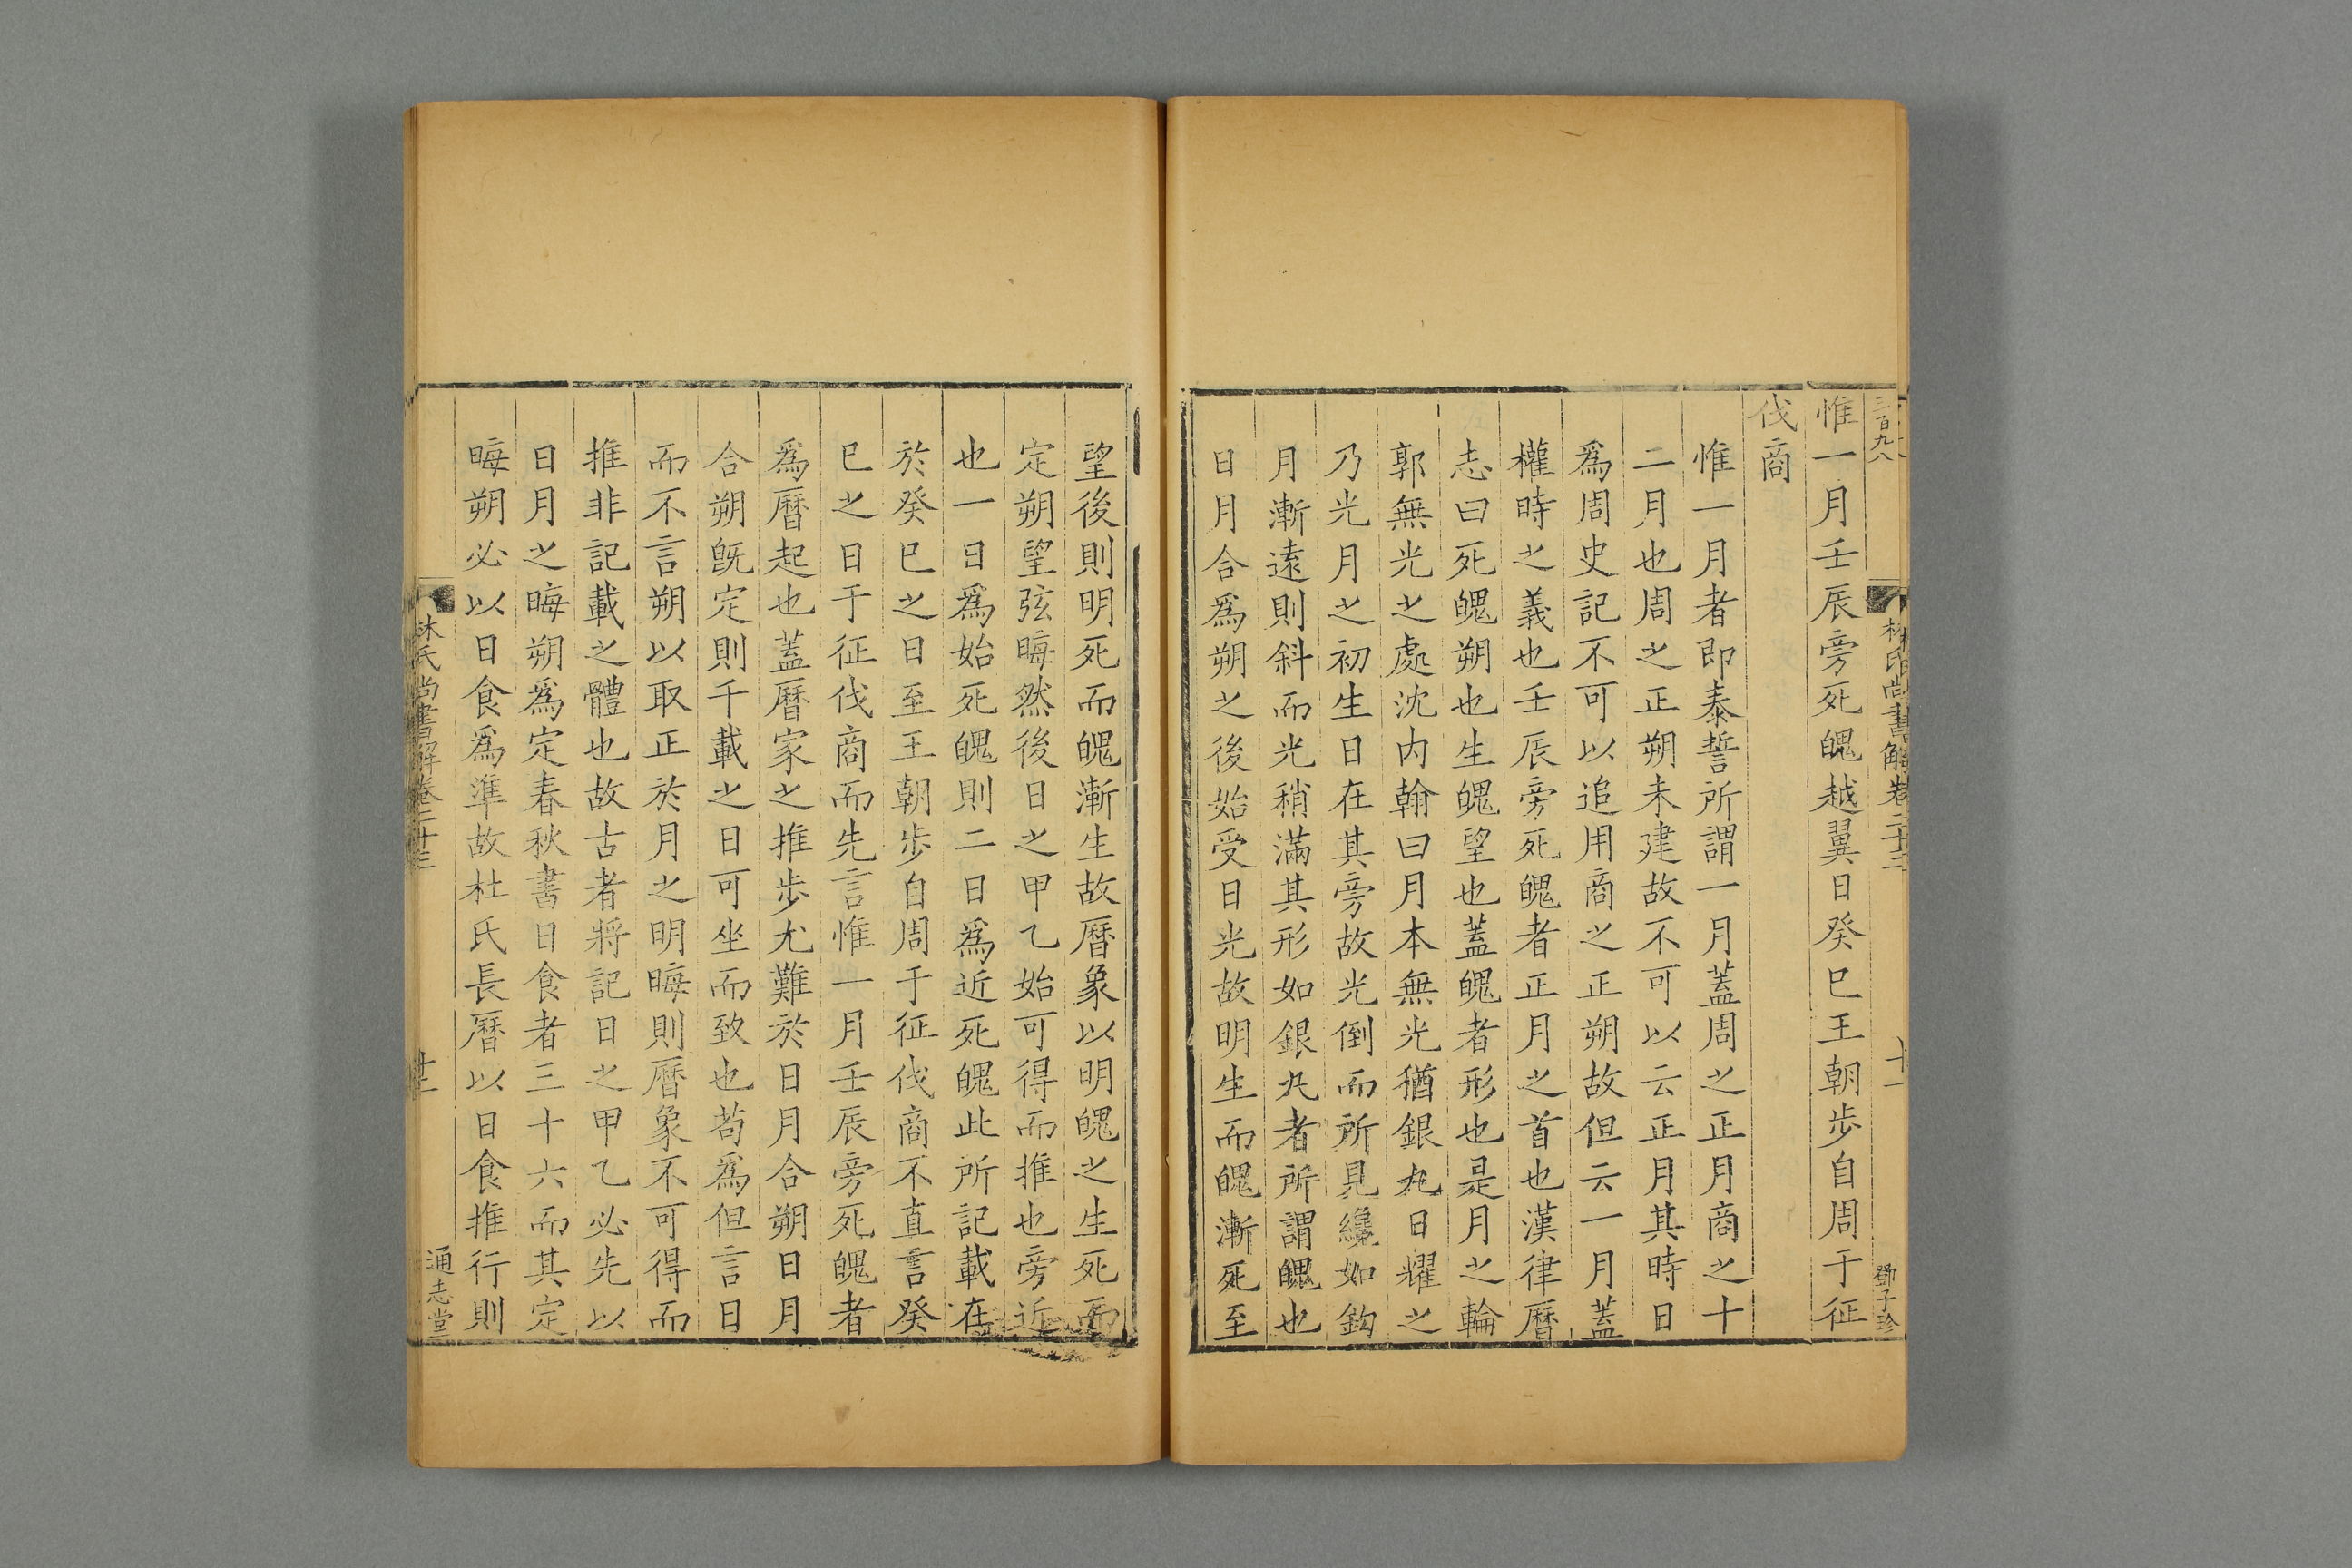 三百九八
林氏尚書解卷二十三
十一
鄧子珍
惟一月壬辰旁死魄越翼日癸巳王朝步自周于征
伐商
惟一月者即泰誓所謂一月蓋周之正月商之十
二月也周之正朔未建故不可以云正月其時日
爲周史記不可以追用商之正朔故但云一月蓋
權時之義也壬辰旁死魄者正月之首也漢律曆
志曰死魄朔也生魄望也蓋魄者形也是月之輪
郭無光之處沈内翰曰月本無光猶銀丸日耀之
乃光月之初生日在其旁故光倒而所見纔如鈎
月漸遠則斜而光稍滿其形如銀丸者所謂魄也
日月合爲朔之後始受日光故明生而魄漸死至
望後則明死而魄漸生故曆象以明魄之生死而
定朔望弦晦然後日之甲乙始可得而推也旁近
也一日爲始死魄則二日爲近死魄此所記載在
於癸巳之日至王朝步自周于征伐商不直言癸
巳之日于征伐商而先言惟一月壬辰旁死魄者
爲曆起也蓋曆家之推步尤難於日月合朔日月
合朔旣定則千載之日可坐而致也苟爲但言日
而不言朔以取正於月之明晦則曆象不可得而
推非記載之體也故古者將記日之甲乙必先以
日月之晦朔爲定春秋書日食者三十六而其定
晦朔必以日食爲準故杜氏長曆以日食推行則
林氏尚書解卷二十三
十一
通志堂